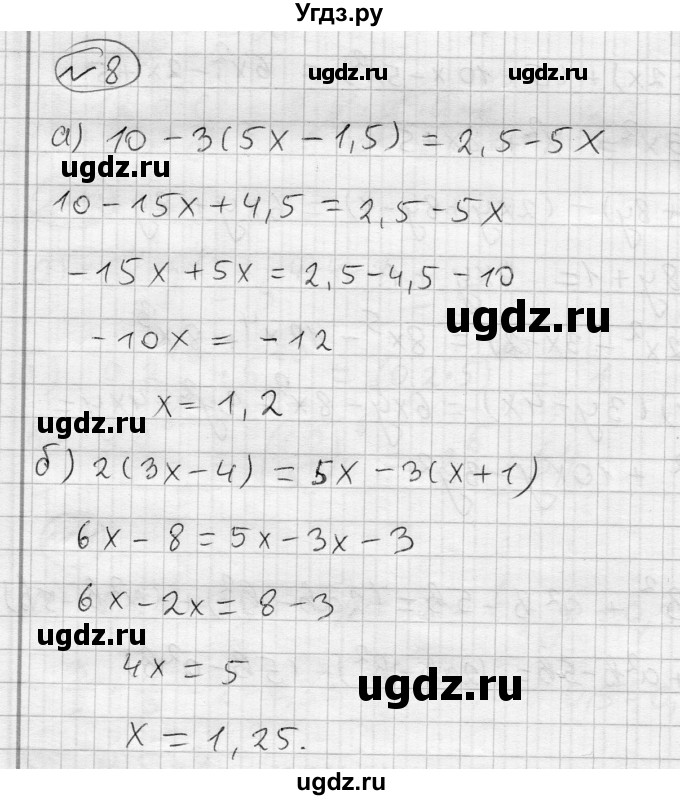 Угдз.ру
№8
ugdz.ru ugdz.ru
а) 10 - 3(5x - 1,5) = 2,5 - 5x
ugdz.ru
10 - 15x + 4,5 = 2,5 - 5x
-15x + 5x = 2,5 - 4,5 - 10
ugdz.ru
-10x = -12
x = 1,2
ugdz.ru
б) 2(3x - 4) = 5x - 3(x + 1)
6x - 8 = 5x - 3x - 3
6x - 2x = 8 - 3
ugdz.ru
4x = 5
ugdz.ru
x = 1,25.
ugdz.ru